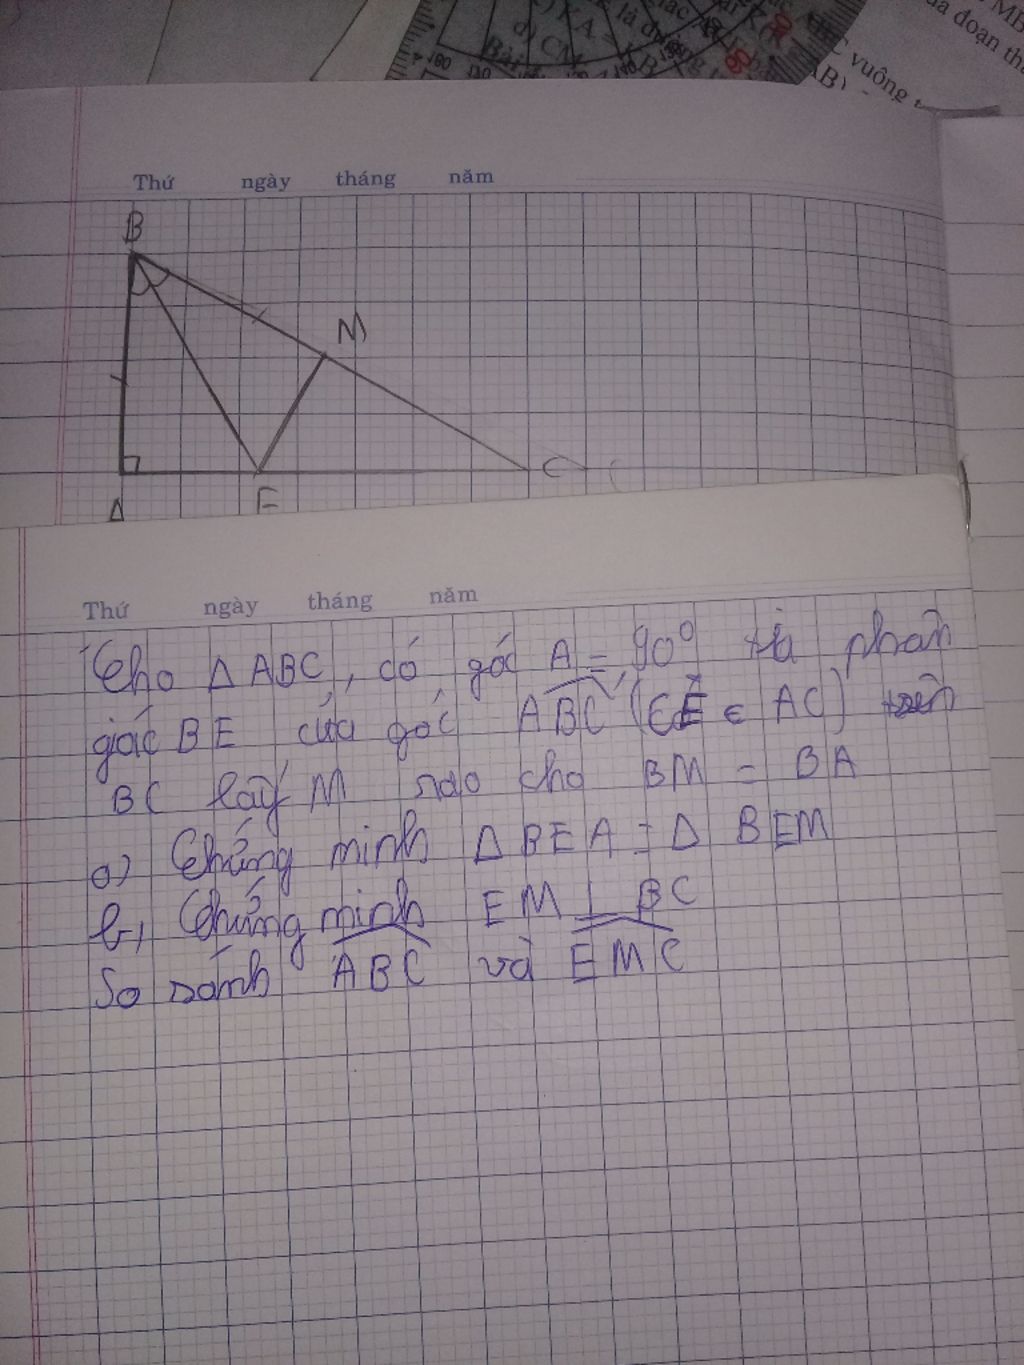 Thứ ngày tháng năm
B
M
C
A
E
Thứ ngày tháng năm
Cho Δ ABC, có góc A = 90° tia phân
giác BE của góc ABC (E ∈ AC) trên
BC lấy M sao cho BM = BA
a) Chứng minh Δ BEA = Δ BEM
b, Chứng minh EM ⊥ BC
So sánh ABC và EMC